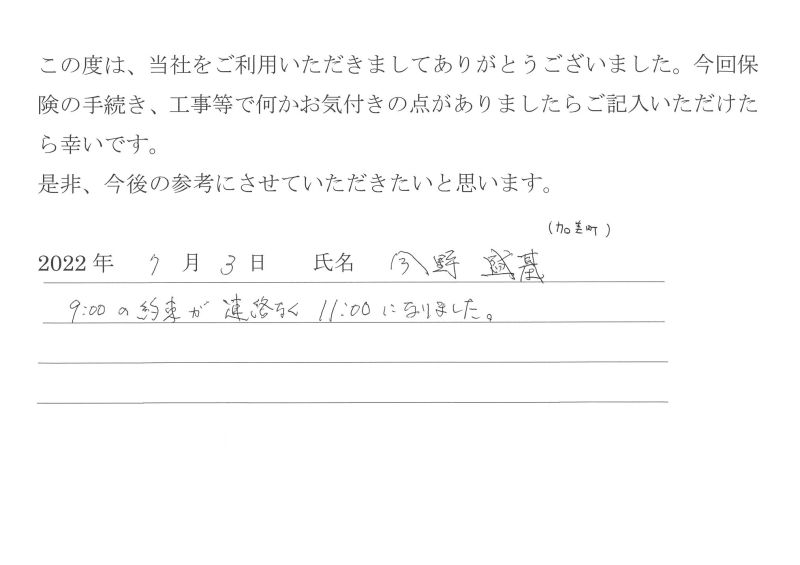 この度は、当社をご利用いただきましてありがとうございました。今回保
険の手続き、工事等で何かお気付きの点がありましたらご記入いただけた
ら幸いです。
是非、今後の参考にさせていただきたいと思います。
(加美町)
2022年 7月 3日 氏名 今野
9:00の約束が連絡なく11:00になりました。